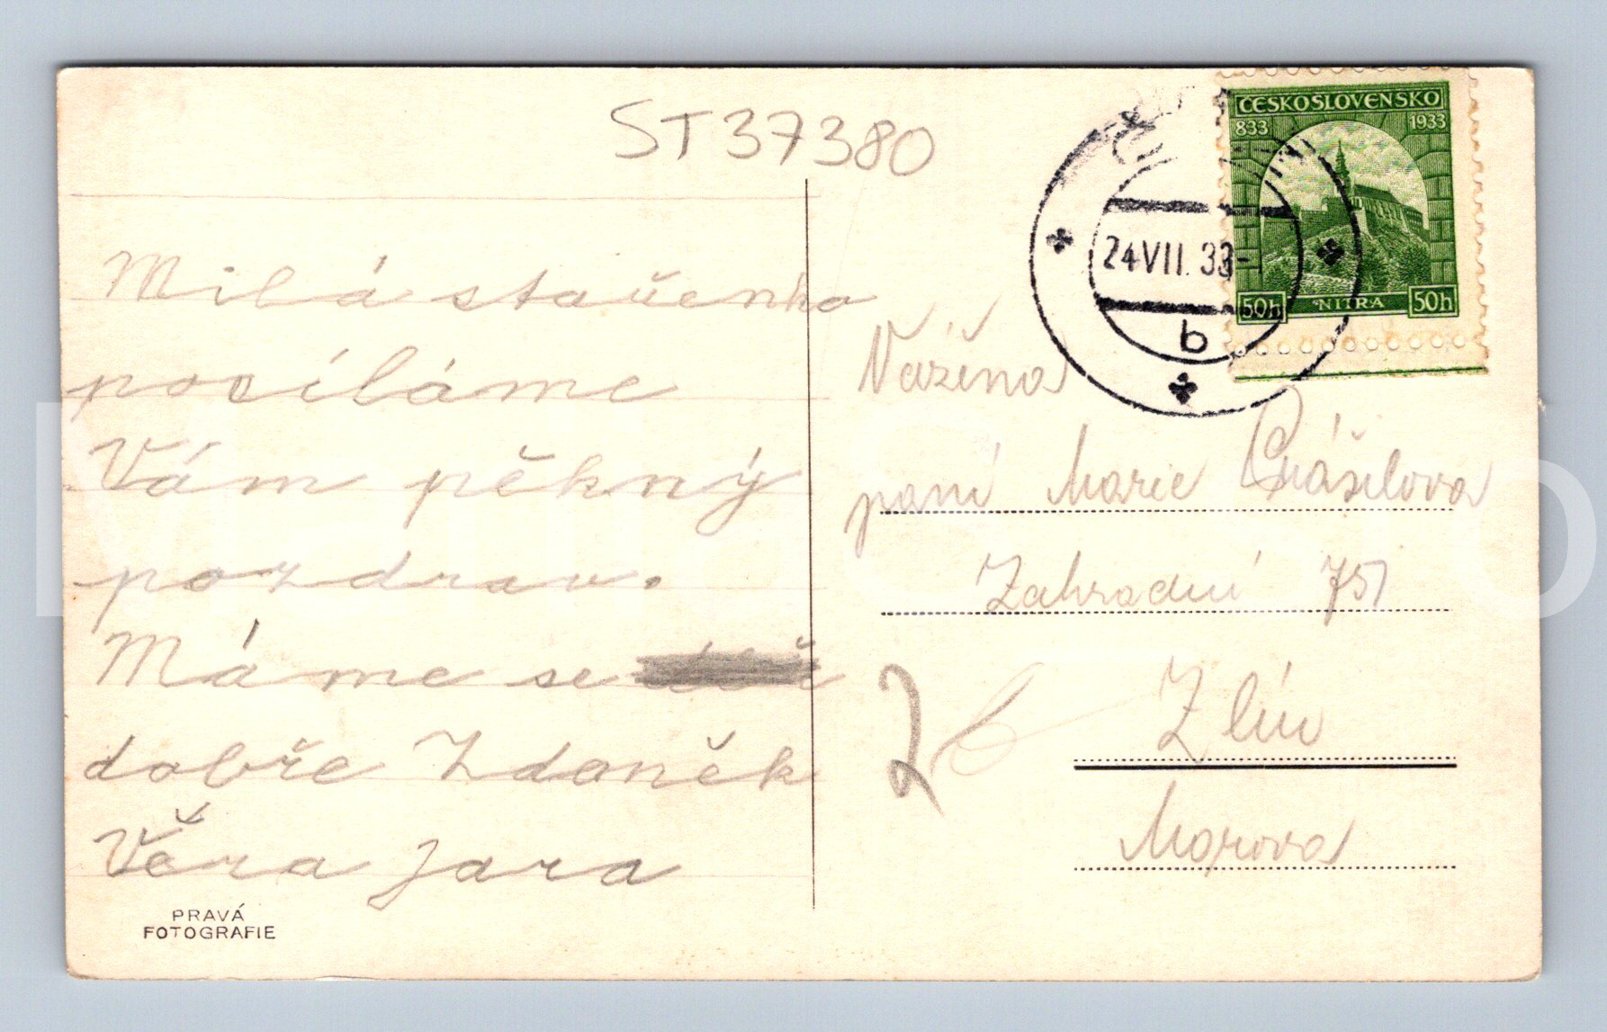 ST37380
Milá stařenko
posíláme
Vám pěkný
pozdrav.
Máme se
dobře Zdaněk
Věra Jara
PRAVÁ
FOTOGRAFIE
ČESKOSLOVENSKO
833 1933
NITRA
50h 50h
24 VII. 33
b
Vážená
paní Marie
Zahradní 751
Zlín
Morava